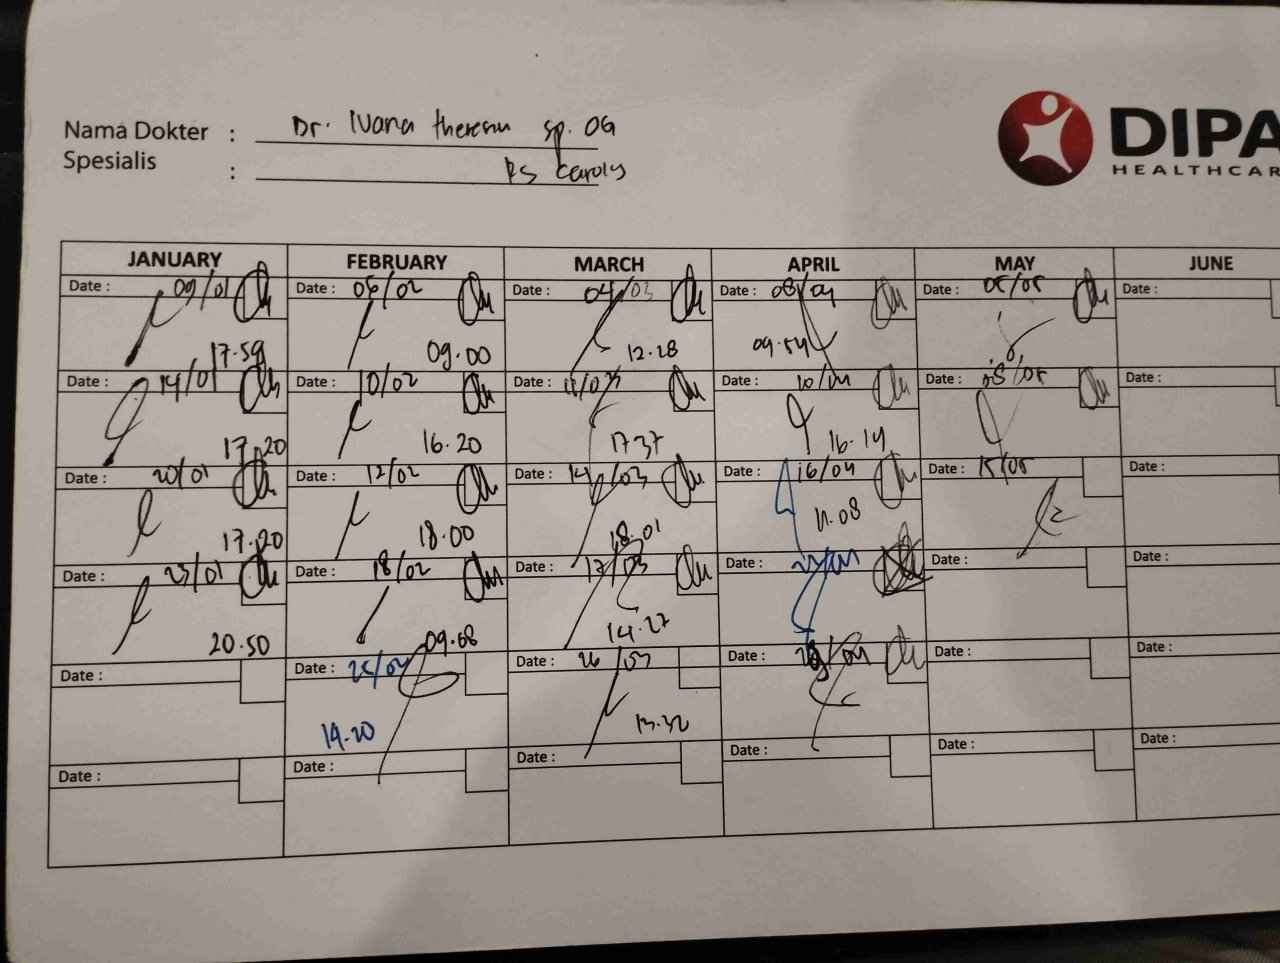 Nama Dokter : Dr. Ivana theresia sp. OG
Spesialis : RS Carolus
DIPA
HEALTHCAR
JANUARY FEBRUARY MARCH APRIL MAY JUNE
Date : 09/01 Date : 06/02 Date : 04/03 Date : 08/04 Date : 05/05 Date :
17.59 09.00 12.28 09.54
Date : 14/01 Date : 10/02 Date : 11/03 Date : 10/04 Date : 08/05 Date :
17.20 16.20 17.37 16.14
Date : 20/01 Date : 12/02 Date : 14/03 Date : 16/04 Date : 15/05 Date :
17.20 18.00 18.01 11.08
Date : 23/01 Date : 18/02 Date : 17/03 Date : Date : Date :
20.50 09.08 14.27
Date : Date : 25/02 Date : 26/03 Date : Date : Date :
19.20 13.32
Date : Date : Date : Date : Date : Date :